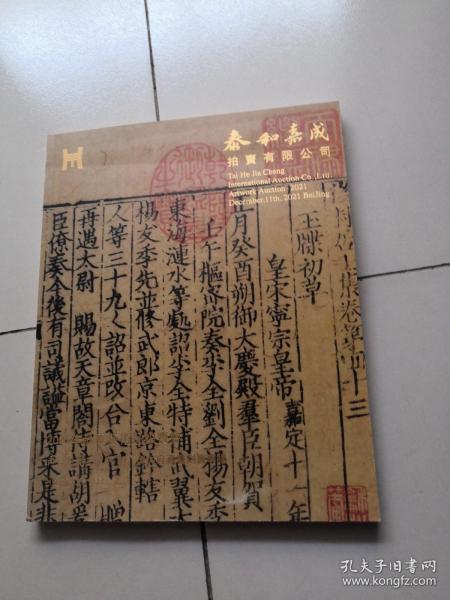 泰和嘉成
拍賣有限公司
Tai He Jia Cheng
International Auction Co.,Ltd.
Artwork Auction 2021
December.11th, 2021 BeiJing
玉牒初草
皇宋寧宗皇帝 嘉定十一年
正月癸酉朔御大慶殿羣臣朝賀
壬午樞密院奏李全劉全揚友季
東海漣水等處詔李全特補武翼大
楊友季先並修武郎京東路鈐轄
人等三十九人詔並改台官 贈
再遇太尉 賜故天章閣待講胡爰
臣僚奏令後有司議諡當博采是非
孔夫子旧书网
www.kongfz.com